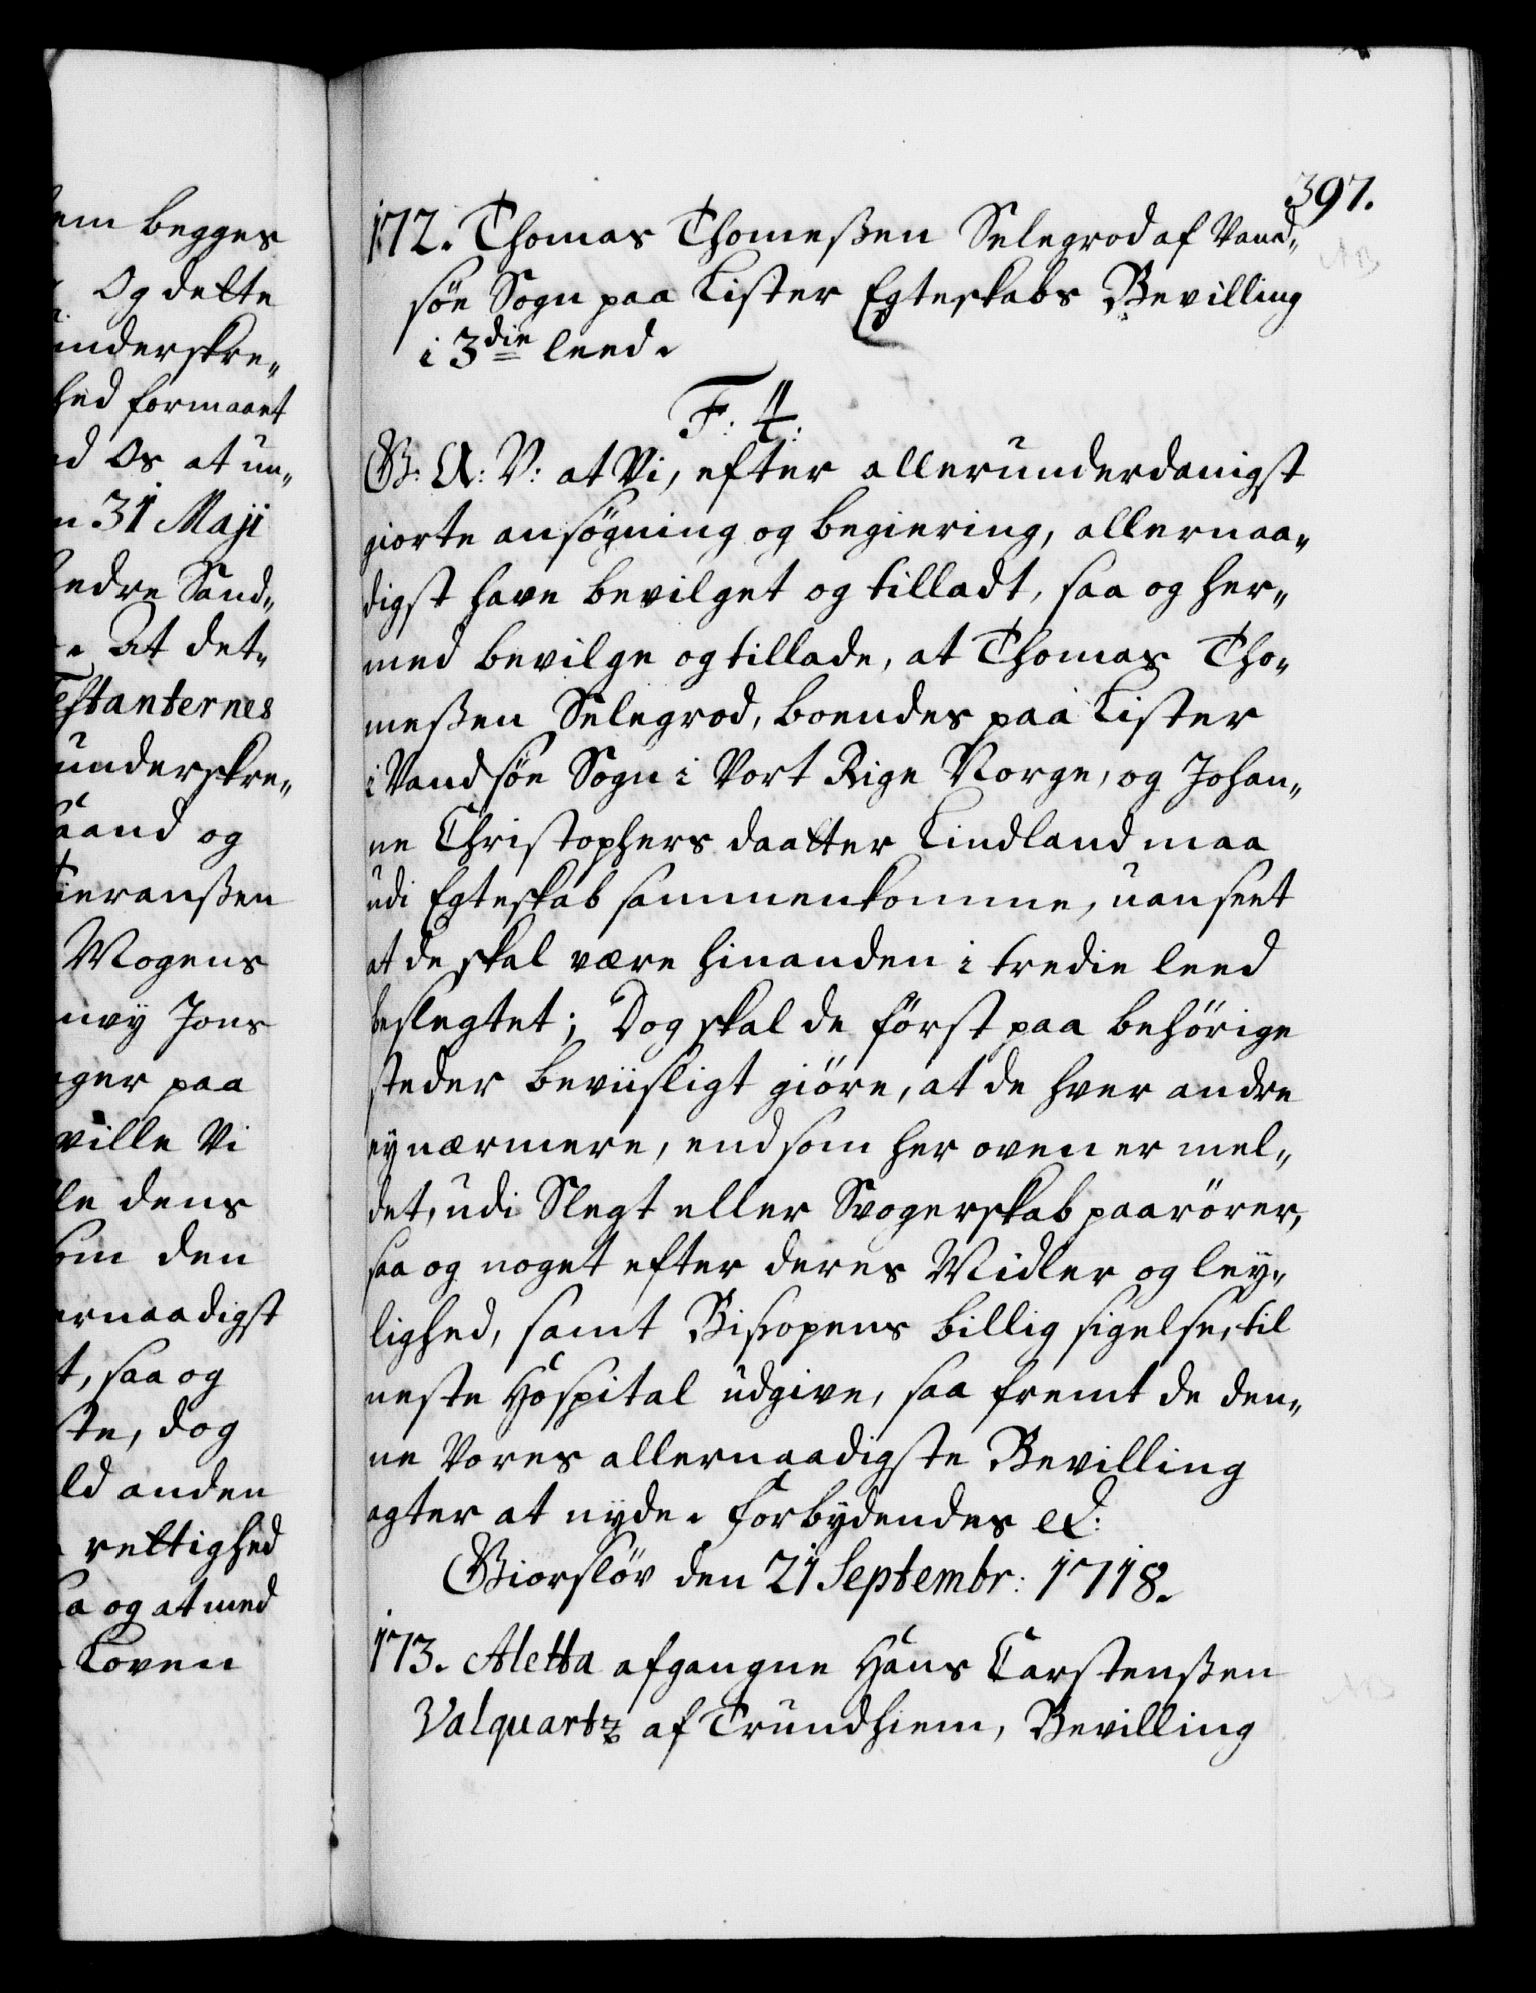 em begges
Og dette
underskre„
hed formaaet
d Os at un„
n 31 Maji
edre Sand„
. At det„
Testanternes
underskre„
aand og
ieranßen
Mogens
nvÿ Jons
ger paa
ville Vi
le dens
om den
ernaadigst
t, saa og
te, dog
ld anden
rettighed
a og at med
Loven
397.
172. Thomas Thomeßen Selegrod af Vand„
söe Sogn paa Lister Egteskabs Bevilling
i 3die leed.
F: 4:
G: A: V: at Vi, efter allerunderdanigst
giorte ansögning og begiering, allernaa„
digst have bevilget og tilladt, saa og her„
med bevilge og tillade, at Thomas Tho„
meßen Selegrod, boendes paa Lister
i Vandsöe Sogn i Vort Rige Norge, og Johan„
ne Christophers daatter Lindland maa
udi Egteskab sammenkomme, uanseet
at de skal være hinanden i tredie leed
beslegtet; Dog skal de först paa behörige
steder beviisligt giöre, at de hver andre
ey nærmere, end som her oven er mel„
det, udi Slegt eller Svogerskab paarörer,
saa og noget efter deres Midler og ley„
lighed, samt Biscopens billig sigelse, til
neste Hospital udgive, saa fremt de den„
ne Vores allernaadigste Bevilling
agter at nyde. Forbydendes &:
Giorslöv den 21 Septembr: 1718.
173. Aletta afgangne Hans Carstenßen
Valquartz af Trundhiem, Bevilling